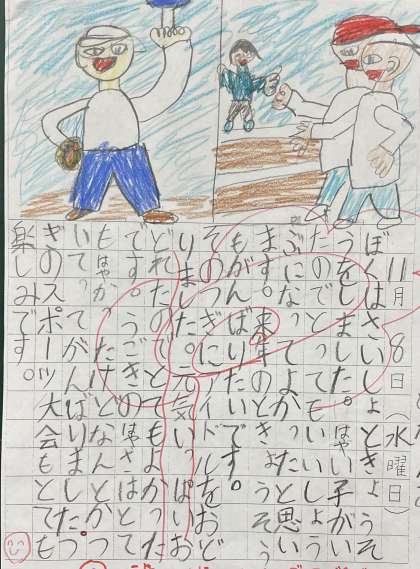 11月8日(水曜日)
ぼくは、さいしょ、ときょうそ
うをしました。はやい子がい
たのでとってもいいしょう
ぶになってよかったと思い
ます。来年のときょうそう
もがんばりたいです。
そのつぎに、アイドルをおど
りました。元気いっぱいお
です。うごきのはやさはとっ
もはやかったけどなんとか
がんばりました。つ
ぎのスポーツ大会もとても
楽しみです。